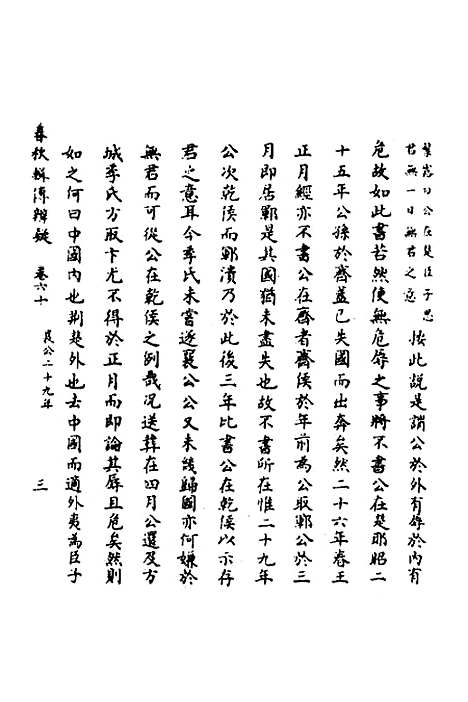 葉氏曰公在楚臣子思
君無一日無君之意
按此說是謂公於外有辱於內有
危故如此書若然使無危辱之事將不書公在楚耶昭二
十五年公孫於齊蓋已失國而出奔矣然二十六年春王
正月經亦不書公在齊者齊侯於年前為公取鄆公於三
月即居鄆是其國猶未盡失也故不書所在惟二十九年
公次乾侯而鄆潰乃於此後三年比書公在乾侯以示存
君之意耳今季氏未嘗逐襄公公又未幾歸國亦何嫌於
無君而可從公在乾侯之例哉況送葬在四月公還及方
城季氏方取卞尤不得於正月而即論其辱且危矣然則
如之何曰中國內也荆楚外也去中國而適外夷為臣子
春秋輯傳辨疑 卷六十 襄公二十九年 三